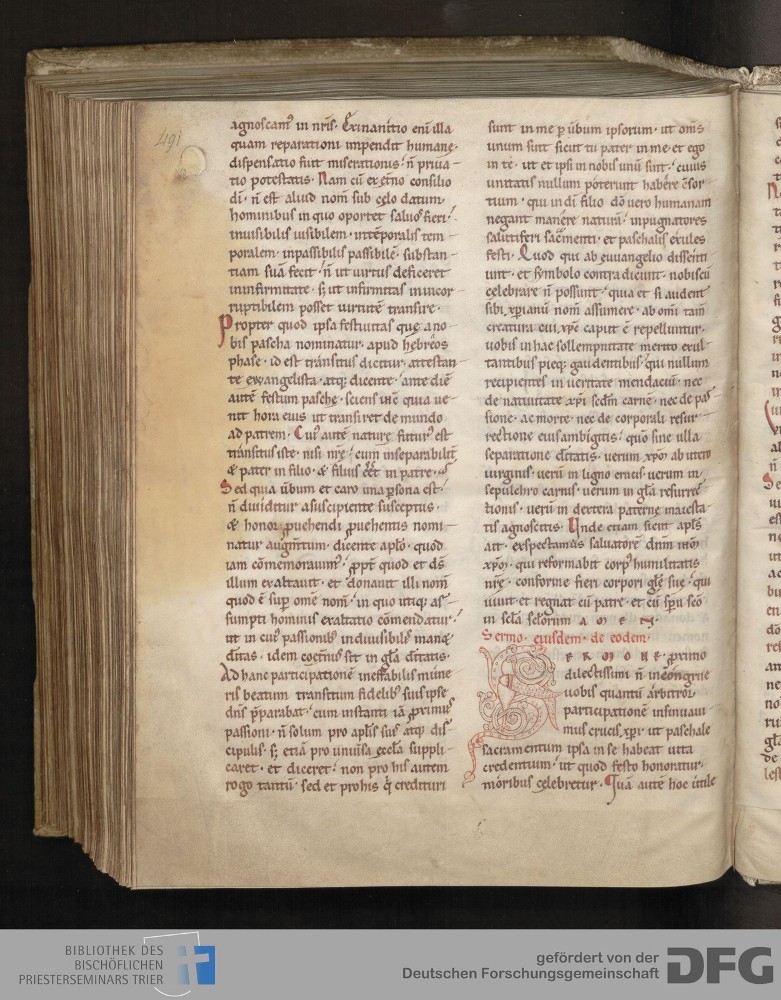 491
agnoscam᷒ in nr̄is· Exinanitio eni illa
quam reparationi impendit humane·
dispensatio fuit miserationis· n̄ priua
tio potestatis· Nam cū ex et̄no consilio
dī· n̄ est aliud nom̄ sub celo datum
hominibus in quo oportet saluos fieri·
inuisibilis uisibilem· intēporalis tem
poralem· inpassibilis passibilē· substan
tiam suā fecit· n̄ ut uirtus deficeret
in infirmitate· s; ut infirmitas in incor
ruptibilem posset uirtutē transire·
Propter quod ipsa festiuitas que a no
bis pascha nominatur· apud hebreos
phase· id est transitus dicitur· attestan
te ewangelista· atq; dicente· ante diē
autē festum pasche· sciens ihc̄ quia ue
nit hora eius ut transiret de mundo
ad patrem· Cui᷒ autē nature futur᷒ est
transitus iste· nisi nr̄e· cum inseparabilit̄
& pater in filio· & filius eēt in patre·
Sed quia ūbum et caro una p̱sona est·
n̄ diuiditur a suscipiente susceptus·
& honor ꝓuehendi ꝓuehentis nomi
natur augm̄tum· dicente apl̄o· quod
iam cōmemorauim᷒· ꝓpt̄ quod et ds̄
illum exaltauit· et donauit illi nom̄
quod ē sup̄ omē nom̄· in quo utiq; as
sumpti hominis exaltatio cōmendatur·
ut in cui᷒ passionib᷒ indiuisibilis manet
ditas· idem coet̄nus sit in gl̄a deitatis·
Ad hanc participationē ineffabilis mune
ris beatum transitum fidelib᷒ suis ipse
dn̄s p̄parabat· cum instanti iā ꝓximus
passioni· n̄ solum pro apl̄is suis atq; dis
cipulis· s; etiā pro uniūsa eccl̄a suppli
caret· et diceret· non pro his autem
rogo tantū· sed et pro his q̄ credituri
sunt in me p̱ ūbum ipsorum· ut om̄s
unum sint sicut tu pater in me· et ego
in te· ut et ipsi in nobis unū sint· cuius
unitatis nullum poterunt habere c̄sor
tium· qui in dī filio dō uero humanam
negant manere naturā· inpugnatores
salutiferi sac̄menti· et paschalis exules
festi· Quod qui ab euuangelio dissenti
unt· et symbolo contradicunt· nobiscū
celebrare n̄ possunt· quia et si audent
sibi xp̄ianū nom̄ assumere· ab omi tam̄
creatura cui xp̄c caput ē repelluntur·
uobis in hac sollempnitate merito exul
tantibus pieq; gaudentibus· qui nullum
recipientes in ueritate mendaciū· nec
de natiuitate xp̄i scd̄m carnē· nec de pas
sione· ac morte· nec de corporali resur
rectione eius ambigitis· quō sine ulla
separatione deitatis· uerum xp̄m· ab utero
uirginis· uerū in ligno crucis· uerum in
sepulchro carnis· uerum in gl̄a resurrec
tionis· uerū in dextera paterne maiesta
tis agnoscitis· Unde etiam sicut apl̄s
ait· exspectamus saluatorē dn̄m ihm̄
xp̄m· qui reformabit corp᷒ humilitatis
nr̄e· conforme fieri corpori gl̄e sue· qui
uiuit et regnat cū patre· et cū sp̄u sc̄o
in scl̄a scl̄orum AMEN·
Sermo eiusdem· de eodem·
SERMONE· ꝓximo
dilectissimi n̄ incongrue
uobis quantū arbitror
participationē insinuaui
mus crucis xp̄i· ut paschale
sacramentum ipsa in se habeat uita
credentium· ut quod festo honoratur·
moribus celebretur· Quā autē hoc utile
BIBLIOTHEK DES
BISCHÖFLICHEN
PRIESTERSEMINARS TRIER
gefördert von der
Deutschen Forschungsgemeinschaft
DFG